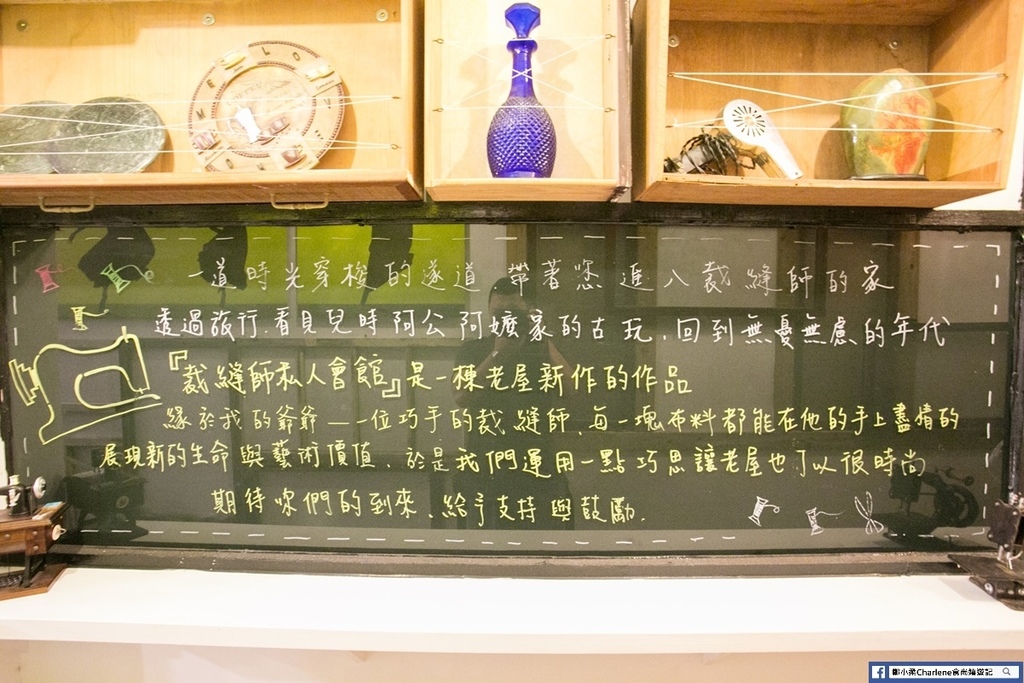 一道時光穿梭的遂道 帶著您 進入裁縫師的家
透過旅行.看見兒時阿公阿嬤家的古玩.回到無憂無慮的年代
『裁縫師私人會館』是一棟老屋新作的作品
緣於我的爺爺——一位巧手的裁縫師.每一塊布料都能在他的手上盡情的
展現新的生命與藝術價值.於是我們運用一點巧思讓老屋也可以很時尚
期待你們的到來.給予支持與鼓勵.
鄭小柔Charlene食尚豬遊記